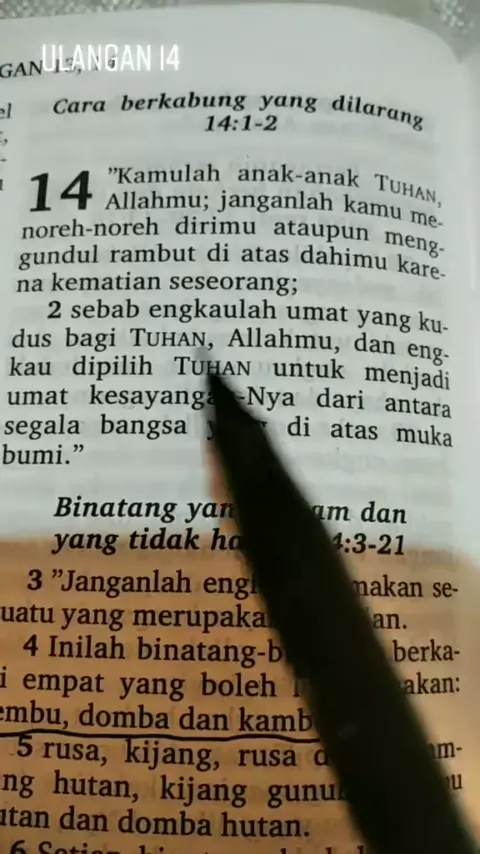 ULANGAN 14
GAN
Cara berkabung yang dilarang
14:1-2
14 "Kamulah anak-anak TUHAN,
Allahmu; janganlah kamu me-
noreh-noreh dirimu ataupun meng-
gundul rambut di atas dahimu kare-
na kematian seseorang;
2 sebab engkaulah umat yang ku-
dus bagi TUHAN, Allahmu, dan eng-
kau dipilih TUHAN untuk menjadi
umat kesayanga -Nya dari antara
segala bangsa di atas muka
bumi."
Binatang yan am dan
yang tidak ha 4:3-21
3 "Janganlah eng makan se-
uatu yang merupaka an.
4 Inilah binatang-b berka-
i empat yang boleh akan:
embu, domba dan kamb
5 rusa, kijang, rusa d m-
ng hutan, kijang gunu u
utan dan domba hutan.
6